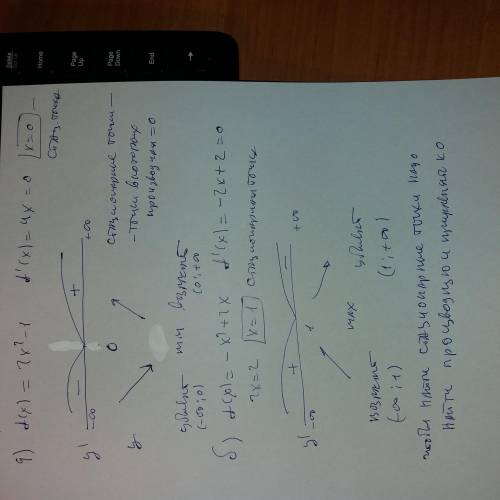 Home
Page Up
Page Down
End
а) f(x) = 2x²-1 f'(x) = 4x = 0 x=0 —
стац. точка
-∞ - 0 + +∞
y'
y
стационарные точки —
- точки в которых
производная = 0
убывает min возрастает
(-∞; 0) (0; +∞
б) f(x) = -x²+2x f'(x) = -2x+2 = 0
2x=2 x=1 стационарная точка
y' -∞ + 1 - +∞
возрастает max убывает
(-∞; 1) (1; +∞)
чтобы найти стационарные точки надо
найти производную и приравнять к 0